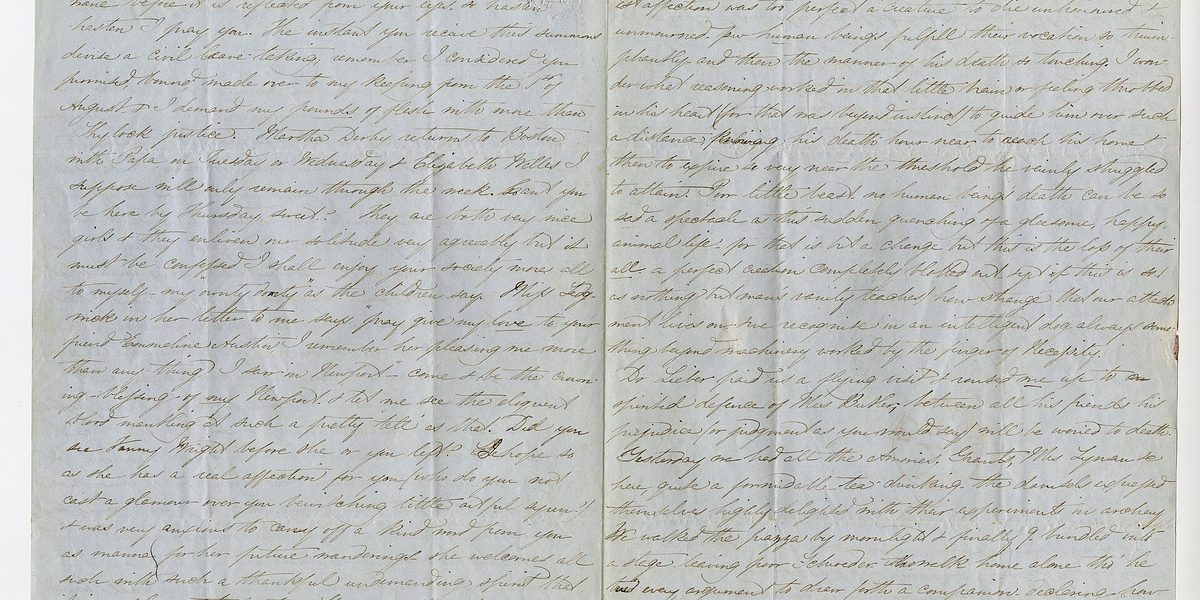 before it is repeated from your lips. So hasten
hasten I pray you. The instant you receive this summons
devise a civil leave taking, remember I considered you
promised, bound, made over to my keeping from the 1st of
August & I demand my pounds of flesh with more than
Shylock justice. Martha Derby returns to Boston
with Papa on Tuesday or Wednesday & Elizabeth Welles I
suppose will only remain through the week. Cant you
be here by Thursday, sweet? They are both very nice
girls & they enliven our solitude very agreeably but it
must be confessed I shall enjoy your society more all
to myself - my "ownty donty" as the children say. Miss Sedg-
wick in her letter to me says "pray give my love to your
friend Emmeline Austin I remember her pleasing me more
than any thing I saw in Newport - come & be the crown-
ing blessing of my Newport. & let me see the eloquent
blood mantling at such a pretty tell as that. Did you
see Fanny Wright before she or you left? I hope so
as she has a real affection for you (who do you not
cast a glamour over you bewitching little artful syren!)
& was very anxious to carry off a kind word from you
as manna for her future wanderings. She welcomes all
such with such a thankful undemanding spirit that
affection was too perfect a creature to die unhonoured &
unmourned. Few human beings fulfill their vocation so trium-
phantly and then the manner of his death so touching. I won-
der what reasoning worked in that little brain or feeling throbbed
in his heart (for that was beyond instinct) to guide him over such
a distance his death hour near to reach his home &
then to expire so very near the threshold he vainly struggled
to attain. Poor little beast no human being's death can be so
sad a spectacle as this sudden quenching of a gleesome, happy
animal life - for that is but a change but this is the loss of their
all - a perfect creation completely blotted out, yet if this is so!
as nothing but man's vanity teaches how strange that our attach
ment lives on - we recognise in an intelligent dog always some
thing beyond machinery worked by the finger of Necessity.
Dr Lieber paid us a flying visit & roused me up to
spirited defence of Mrs Butler, between all his friends his
prejudice (or judgment as you would say) will be worried to death.
Yesterday we had all the Amories, Grants, Mrs Lyman &c
here quite a formidable tea drinking. The damsels expressed
themselves highly delighted with their experiments in archery
We walked the piazza by moonlight & finally 9 bundled into
a stage leaving poor Schroeder to walk home alone tho he
tried every argument to draw forth a companion, declaring how